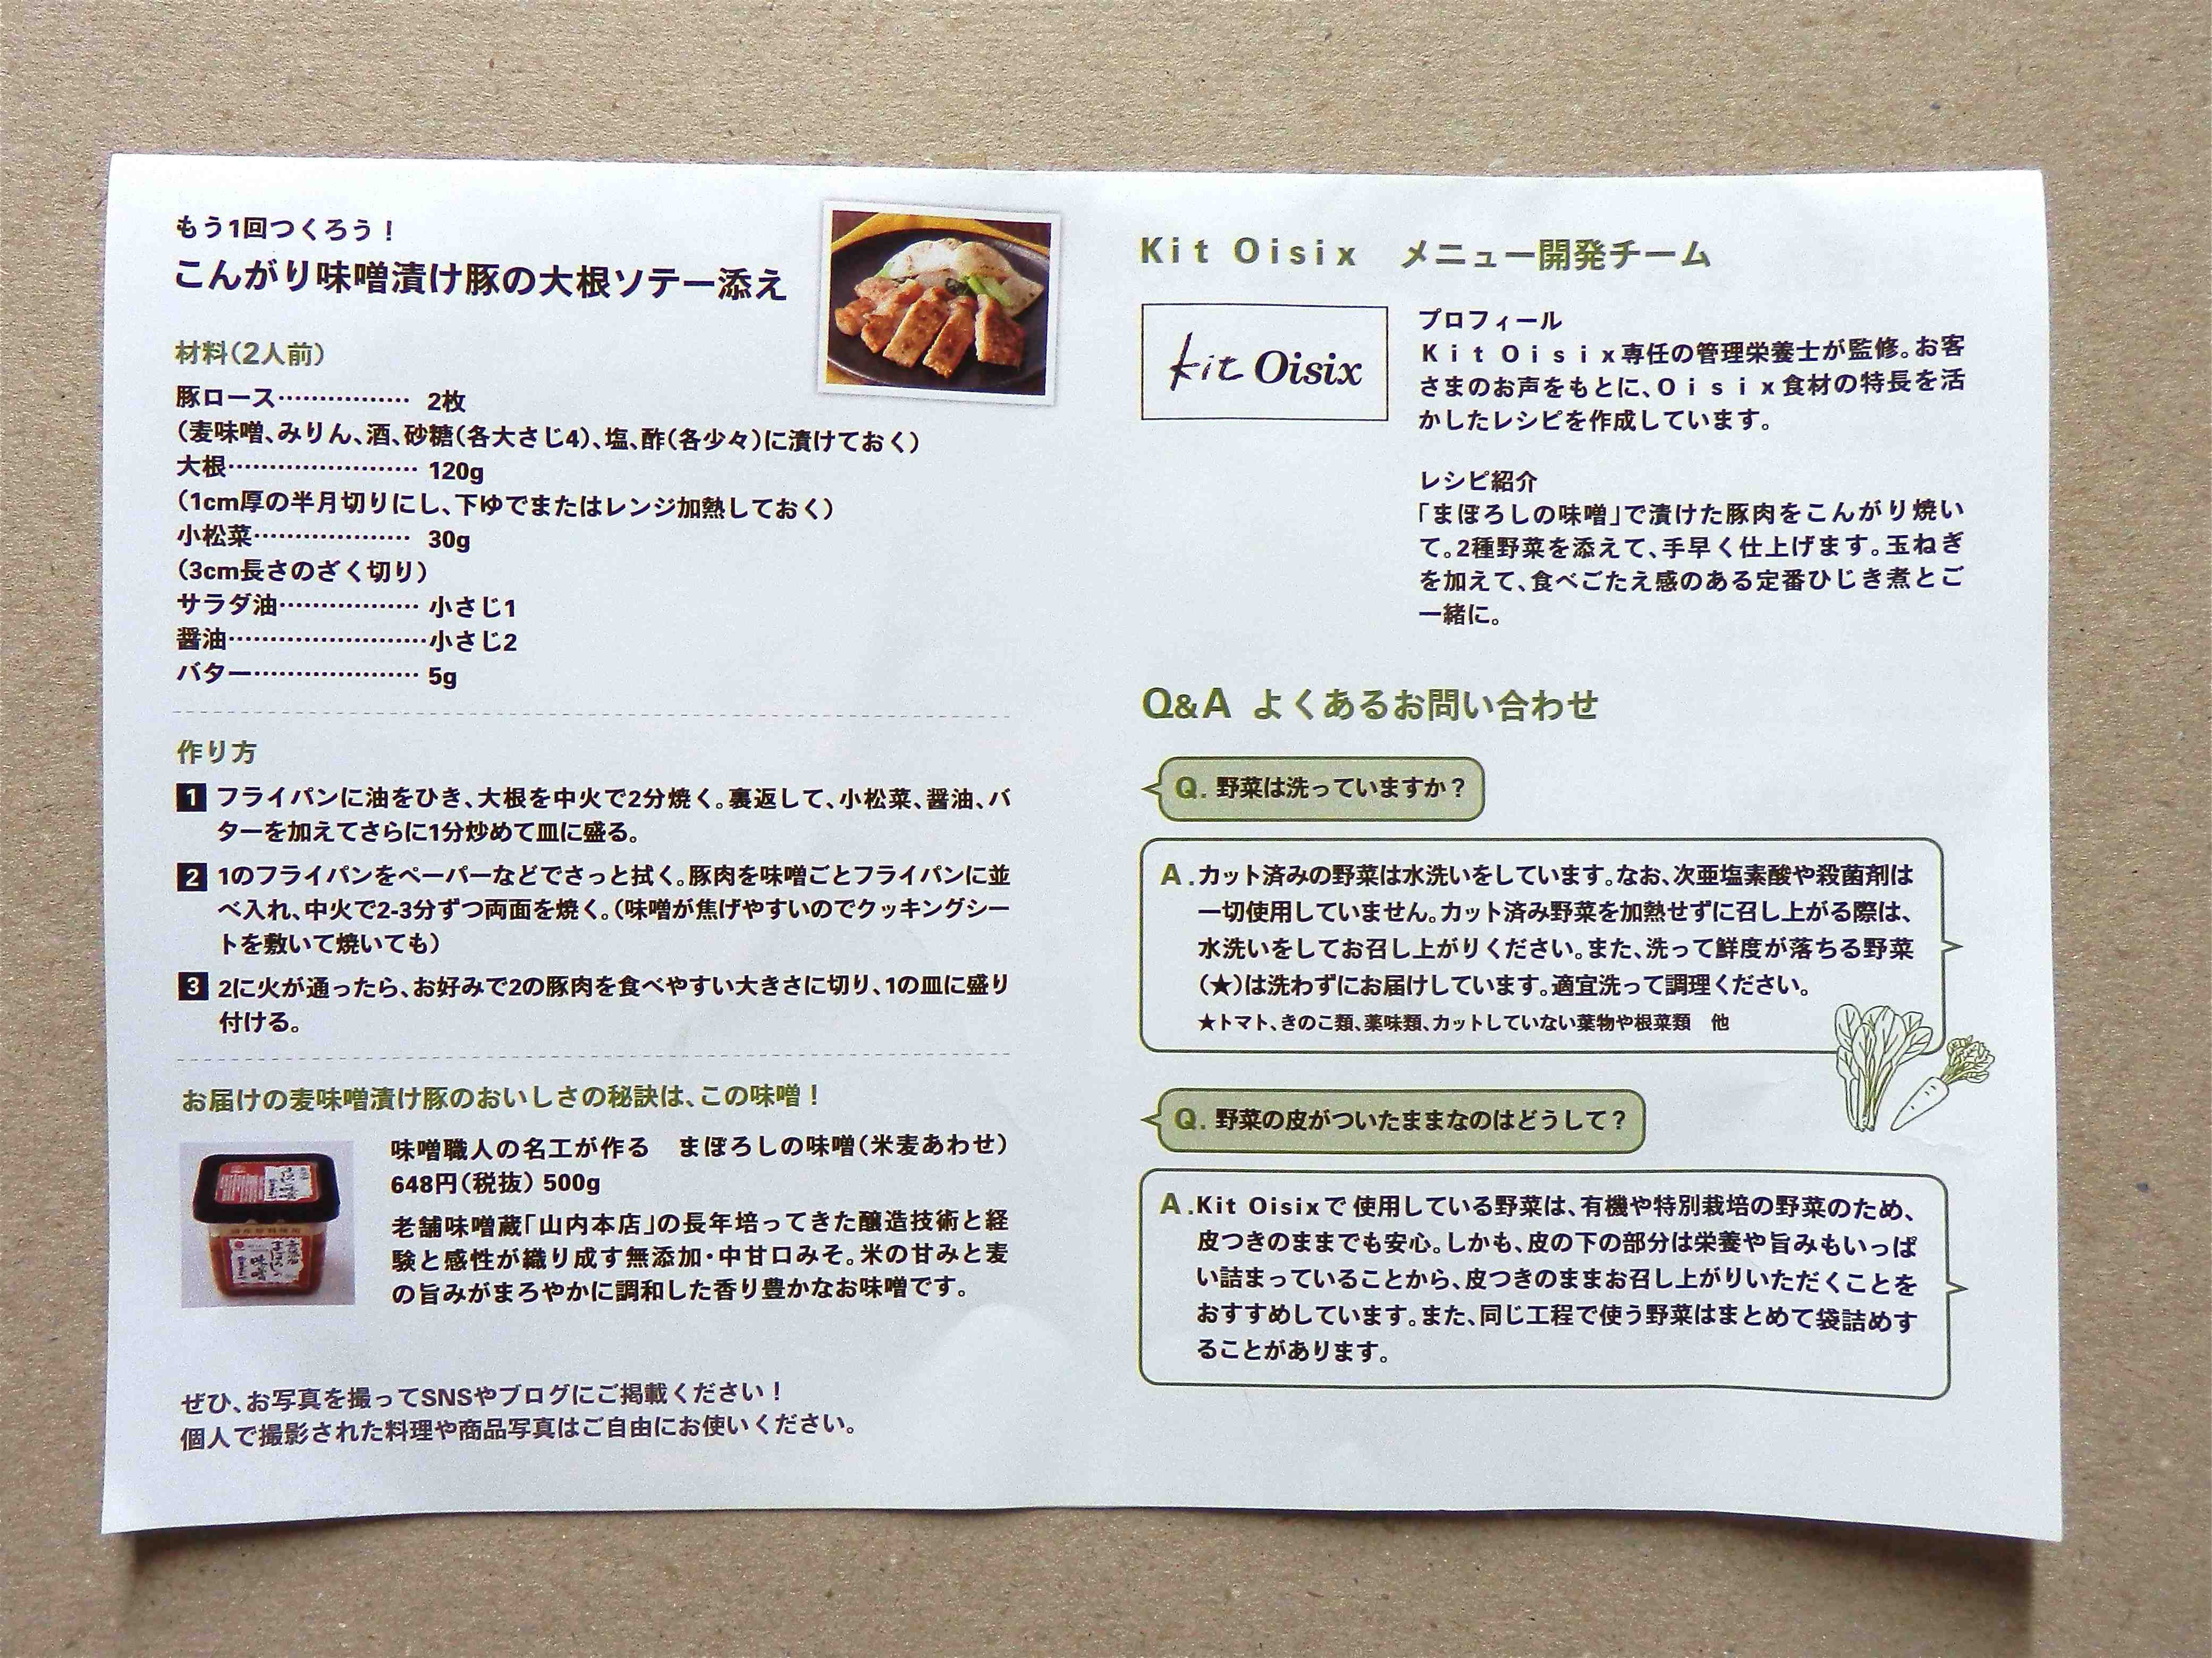 もう1回つくろう！
こんがり味噌漬け豚の大根ソテー添え
材料（2人前）
豚ロース……………… 2枚
（麦味噌、みりん、酒、砂糖（各大さじ4）、塩、酢（各少々）に漬けておく）
大根…………………… 120g
（1cm厚の半月切りにし、下ゆでまたはレンジ加熱しておく）
小松菜………………… 30g
（3cm長さのざく切り）
サラダ油……………… 小さじ1
醤油……………………小さじ2
バター………………… 5g
作り方
1 フライパンに油をひき、大根を中火で2分焼く。裏返して、小松菜、醤油、バ
ターを加えてさらに1分炒めて皿に盛る。
2 1のフライパンをペーパーなどでさっと拭く。豚肉を味噌ごとフライパンに並
べ入れ、中火で2-3分ずつ両面を焼く。（味噌が焦げやすいのでクッキングシー
トを敷いて焼いても）
3 2に火が通ったら、お好みで2の豚肉を食べやすい大きさに切り、1の皿に盛り
付ける。
お届けの麦味噌漬け豚のおいしさの秘訣は、この味噌！
味噌職人の名工が作る　まぼろしの味噌（米麦あわせ）
648円（税抜） 500g
老舗味噌蔵「山内本店」の長年培ってきた醸造技術と経
験と感性が織り成す無添加・中甘口みそ。米の甘みと麦
の旨みがまろやかに調和した香り豊かなお味噌です。
ぜひ、お写真を撮ってSNSやブログにご掲載ください！
個人で撮影された料理や商品写真はご自由にお使いください。
Kit Oisix　メニュー開発チーム
kit Oisix
プロフィール
Ｋｉｔ Ｏｉｓｉｘ専任の管理栄養士が監修。お客
さまのお声をもとに、Ｏｉｓｉｘ食材の特長を活
かしたレシピを作成しています。
レシピ紹介
「まぼろしの味噌」で漬けた豚肉をこんがり焼い
て。2種野菜を添えて、手早く仕上げます。玉ねぎ
を加えて、食べごたえ感のある定番ひじき煮とご
一緒に。
Q&A よくあるお問い合わせ
Q. 野菜は洗っていますか？
A.カット済みの野菜は水洗いをしています。なお、次亜塩素酸や殺菌剤は
一切使用していません。カット済み野菜を加熱せずに召し上がる際は、
水洗いをしてお召し上がりください。また、洗って鮮度が落ちる野菜
（★）は洗わずにお届けしています。適宜洗って調理ください。
★トマト、きのこ類、薬味類、カットしていない葉物や根菜類　他
Q. 野菜の皮がついたままなのはどうして？
A.Kit Oisixで使用している野菜は、有機や特別栽培の野菜のため、
皮つきのままでも安心。しかも、皮の下の部分は栄養や旨みもいっぱ
い詰まっていることから、皮つきのままお召し上がりいただくことを
おすすめしています。また、同じ工程で使う野菜はまとめて袋詰めす
ることがあります。